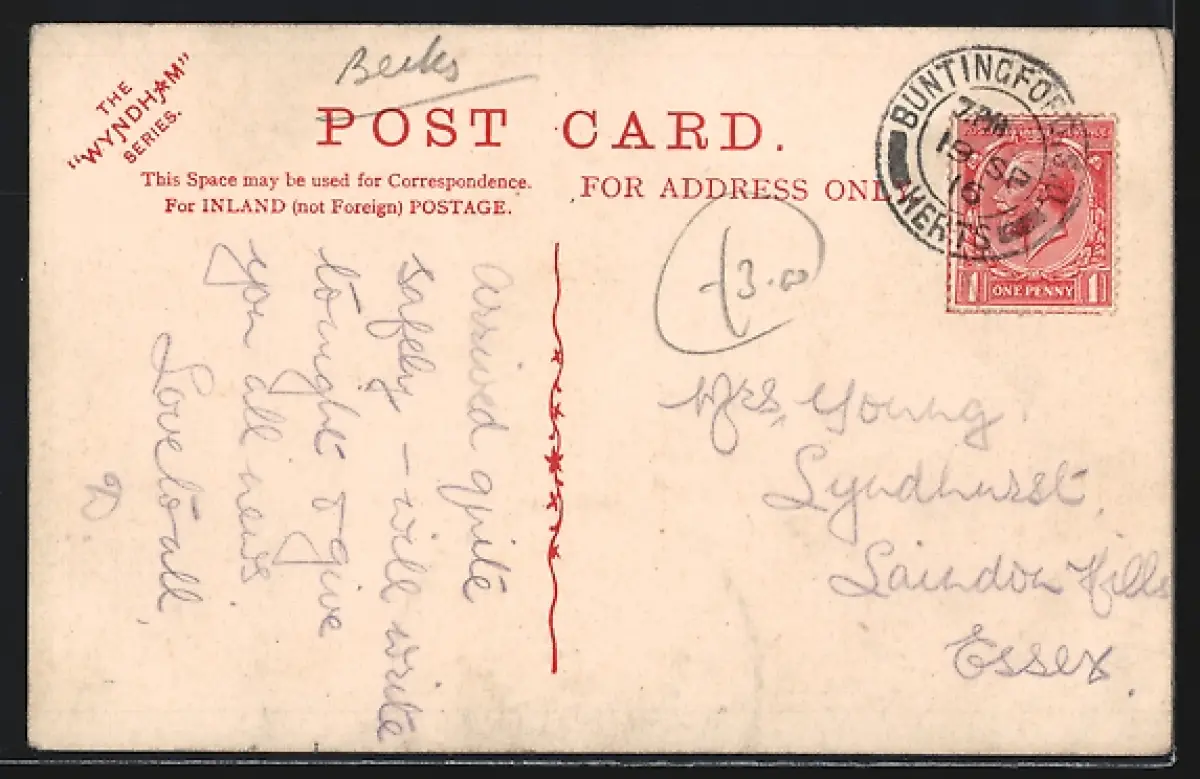 Becks
THE
"WYNDHAM"
SERIES.
POST CARD.
This Space may be used for Correspondence.
For INLAND (not Foreign) POSTAGE.
FOR ADDRESS ONLY
BUNTINGFORD
7 PM
19 SP
16
HERTS
ONE PENNY
1 1
3.00
arrived quite
safely – will write
tonight & give
you all news
Love to all
Mrs. Young
Lyndhurst,
Laindon Hills
Essex.